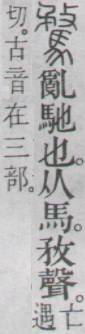 騖亂馳也。从馬。敄聲。亡遇
切。古音在三部。